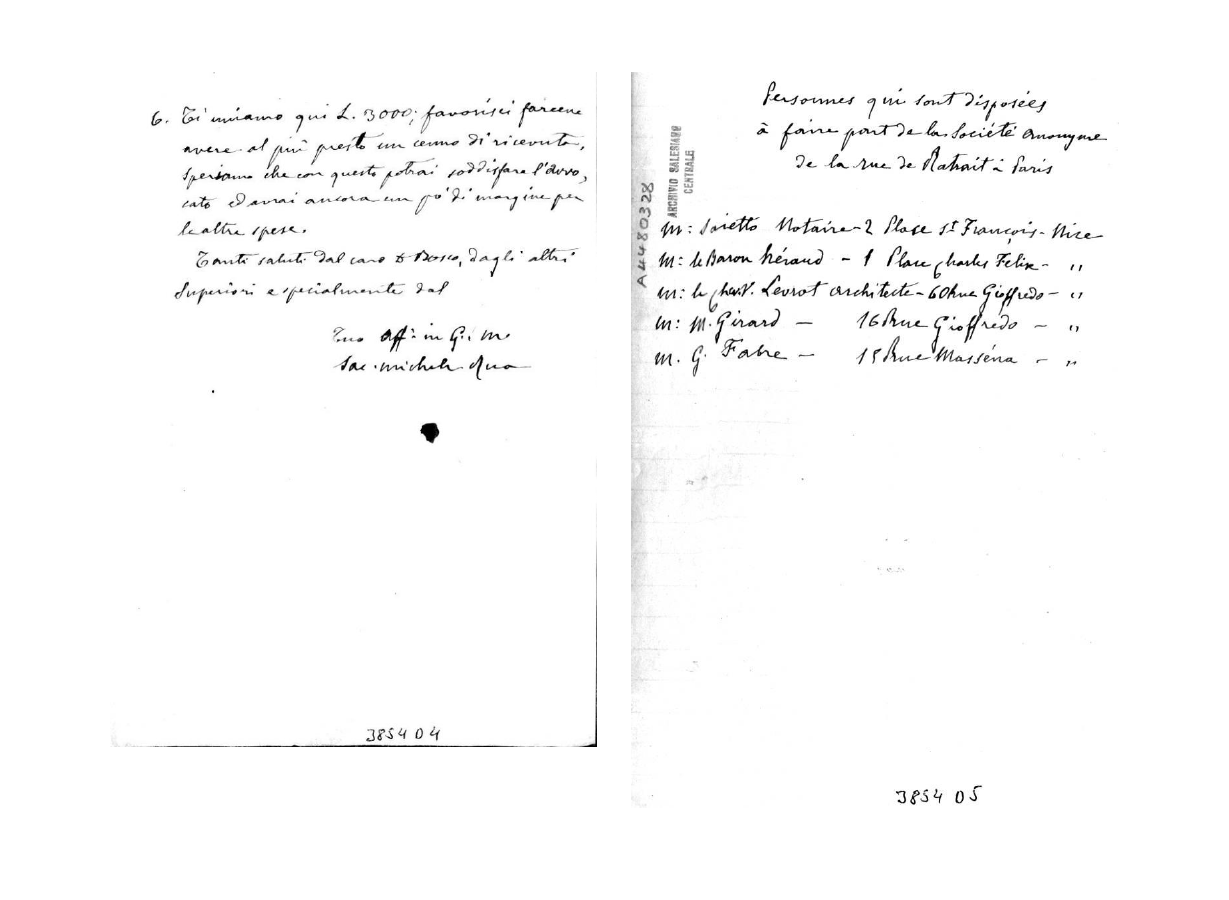 6. Ti uniamo qui L. 3000; favorisci farcene
avere al più presto un cenno di ricevuta,
Speriamo che con questo potrai soddisfare l'avvo,
cato ed avrai ancora un po' di margine per
le altre spese.
Tanti saluti dal caro D Bosco, dagli altri
Superiori e specialmente dal
Tuo aff. in G. e M.
Sac. Michele Rua
3854 D 4
Personnes qui sont disposées
à faire part de la Société anonyme
de la rue de Ratrait à Paris
ARCHIVIO SALESIANO
CENTRALE
A4480328
M: Sajetto Notaire - 2 Place St François - Nice
M: le Baron Héraud - 1 Place Charles Felix - "
M: le Chev. V. Levrot architecte - 60 Rue Gioffredo - "
M: M. Girard - 16 Rue Gioffredo - "
M. G. Fabre - 15 Rue Masséna - "
3854 D5